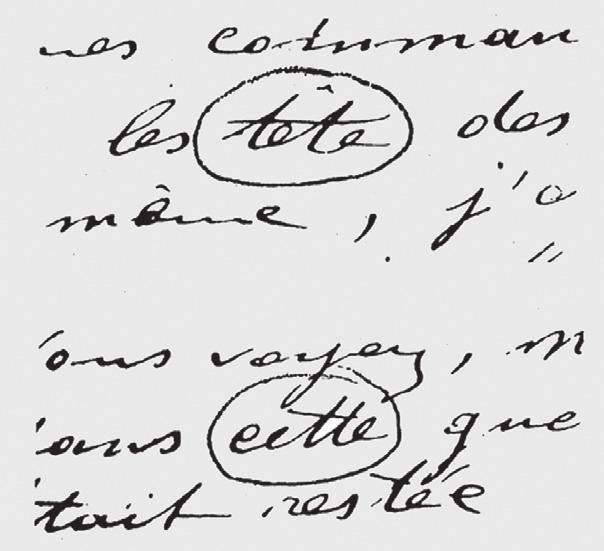 nes comman
les tête des
même, j'a
"
ous voyez, m
ans cette que
tait restée